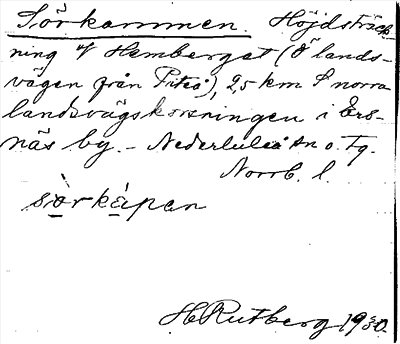 Sörkammen. Höjdsträck-
ning v/ Hemberget (Ö lands-
vägen från Piteå), 2,5 km S norra
landsvägskorsningen i Ers-
näs by. - Nederluleå sn o. Tg.
Norrb. l.
sòrkápan
H Rutberg 1930.